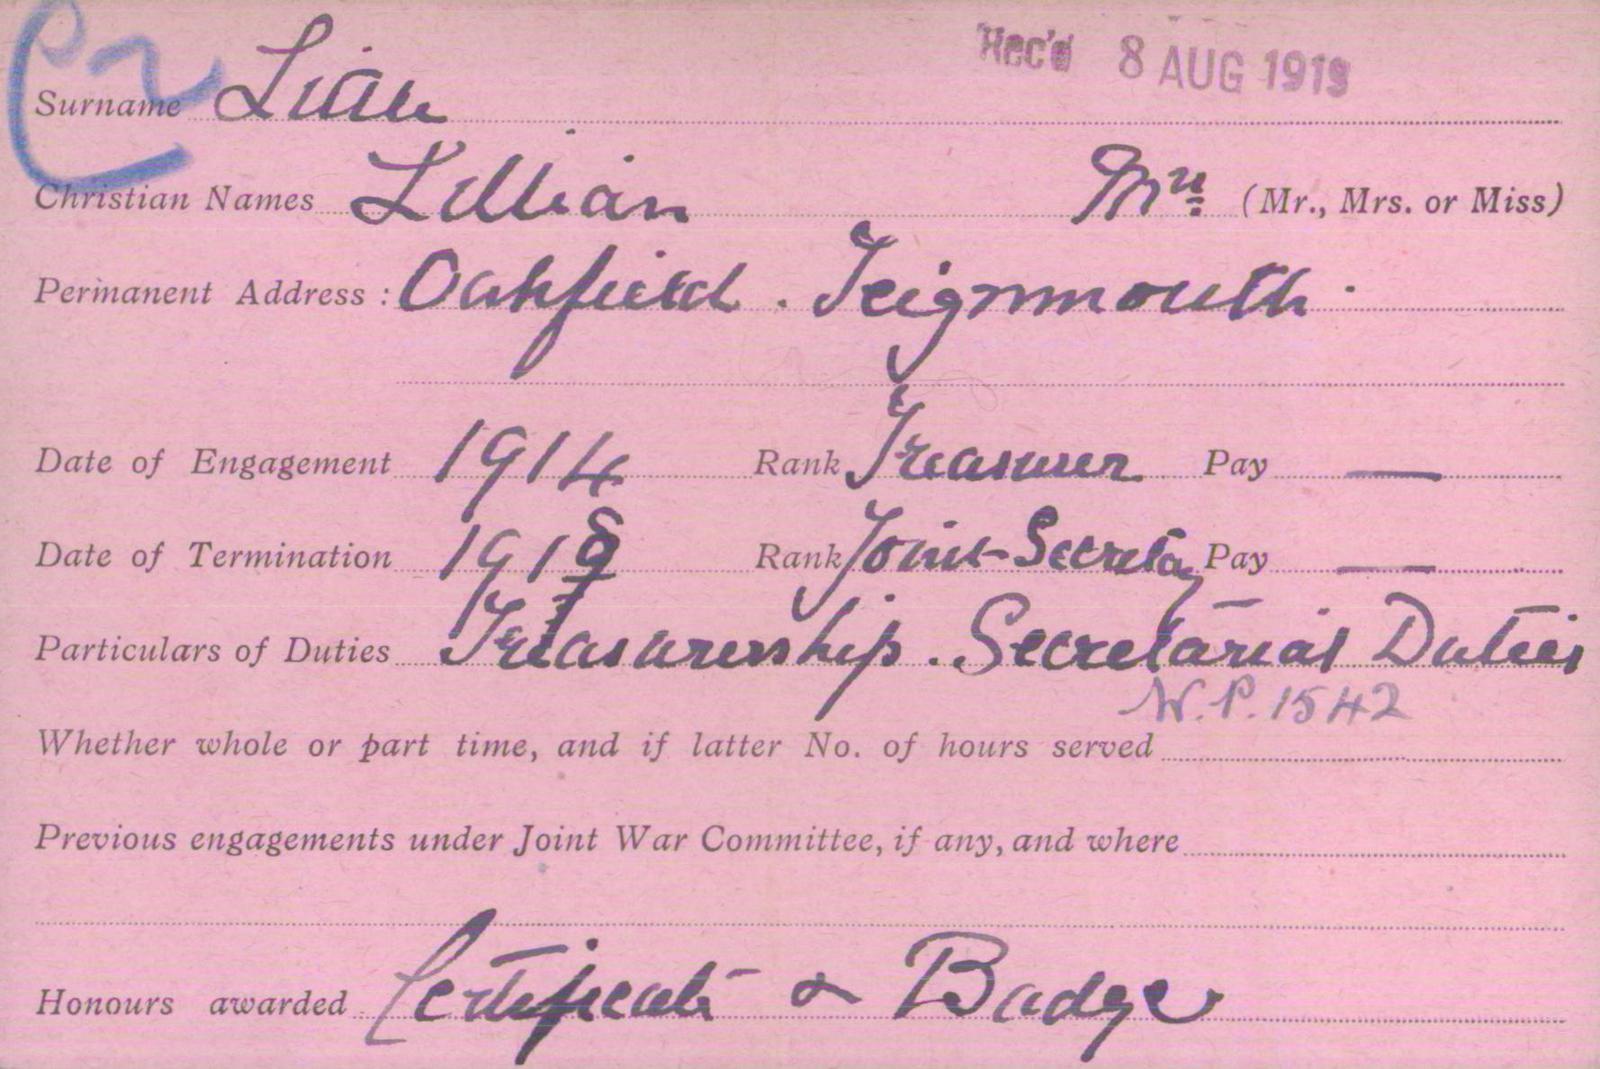 Rec'd 8 AUG 1919
Surname
Christian Names Lillian Mrs (Mr., Mrs. or Miss)
Permanent Address : Oakfield . Teignmouth .
Date of Engagement 1914 Rank Treasurer Pay —
Date of Termination 1918 Rank Joint-Secretary Pay —
Particulars of Duties Treasurership . Secretarial Duties
W.P. 1542
Whether whole or part time, and if latter No. of hours served
Previous engagements under Joint War Committee, if any, and where
Honours awarded Certificate & Badge